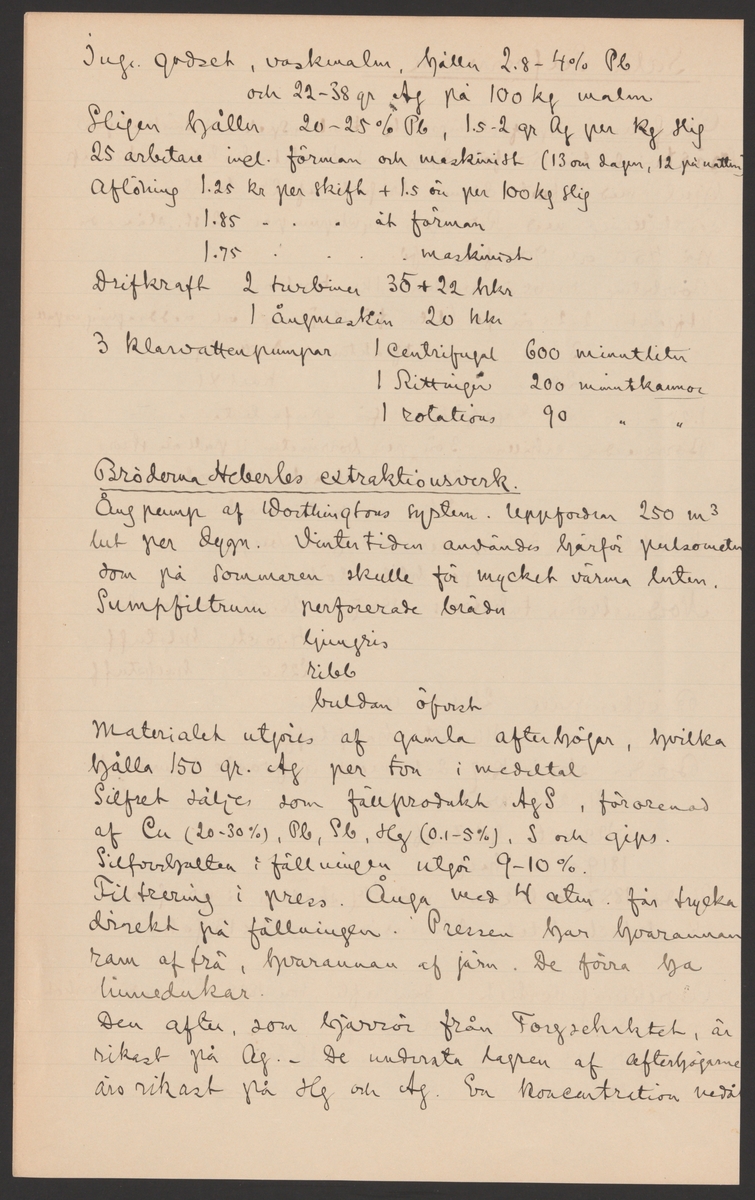 Ing. godset, vaskmalm, håller 2.8-4% Pb
och 22-38 gr Ag på 100 kg malm
Sligen håller 20-25% Pb, 1.5-2 gr Ag per kg slig
25 arbetare incl. förman och maskinist (13 om dagen, 12 på natten)
Aflöning 1.25 kr per skift + 1.5 öre per 100 kg slig
1.85 - . . åt förman
1.75 . . . . maskinist
Drifkraft 2 turbiner 35+22 hkr
1 ångmaskin 20 hkr
3 klarvattenpumpar 1 Centrifugal 600 minutliter
1 Rittinger 200 minutkannor
1 rotations 90 " "
Bröderna Heberles extraktionsverk.
Ångpump af Worthingtons system. Uppfordrar 250 m³
lut per dygn. Vintertiden användes härför pulsometer
som på sommaren skulle för mycket värma luten.
Sumpfiltrum perforerade bräder
ljungris
ribb
buldan öfverst
Materialet utgöres af gamla afterhögar, hvilka
hålla 150 gr. Ag per ton i medeltal
Silfret säljes som fällprodukt AgS, förorenad
af Cu (20-30%), Pb, Sb, Hg (0.1-5%), S och gips.
Silfverhalten i fällningen utgör 9-10%.
Filtrering i press. Ånga med 4 atm. får trycka
direkt på fällningen. Pressen har hvarannan
ram af trä, hvarannan af järn. De förra ha
linnedukar.
Den after, som härrör från Forgschaktet, är
rikast på Ag. - De understa lagren af afterhögarne
äro rikast på Hg och Ag. En koncentration nedåt